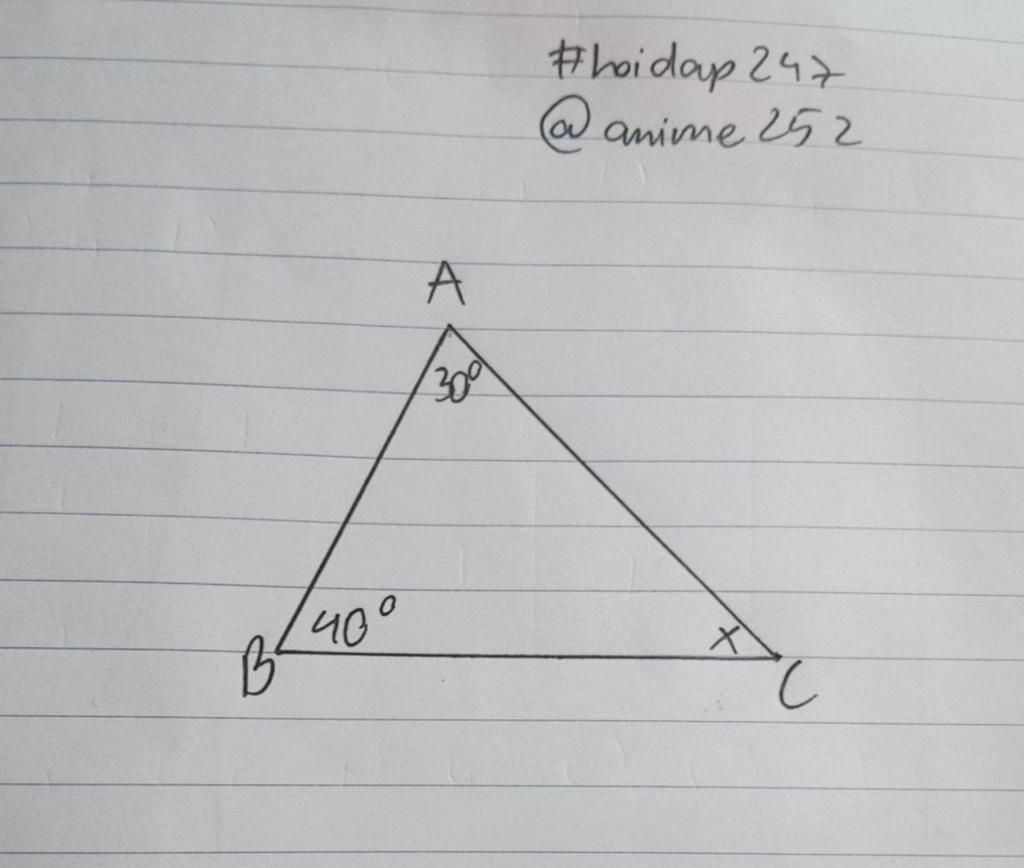 #hoidap247
@anime252
A
30°
40°
B
x
C